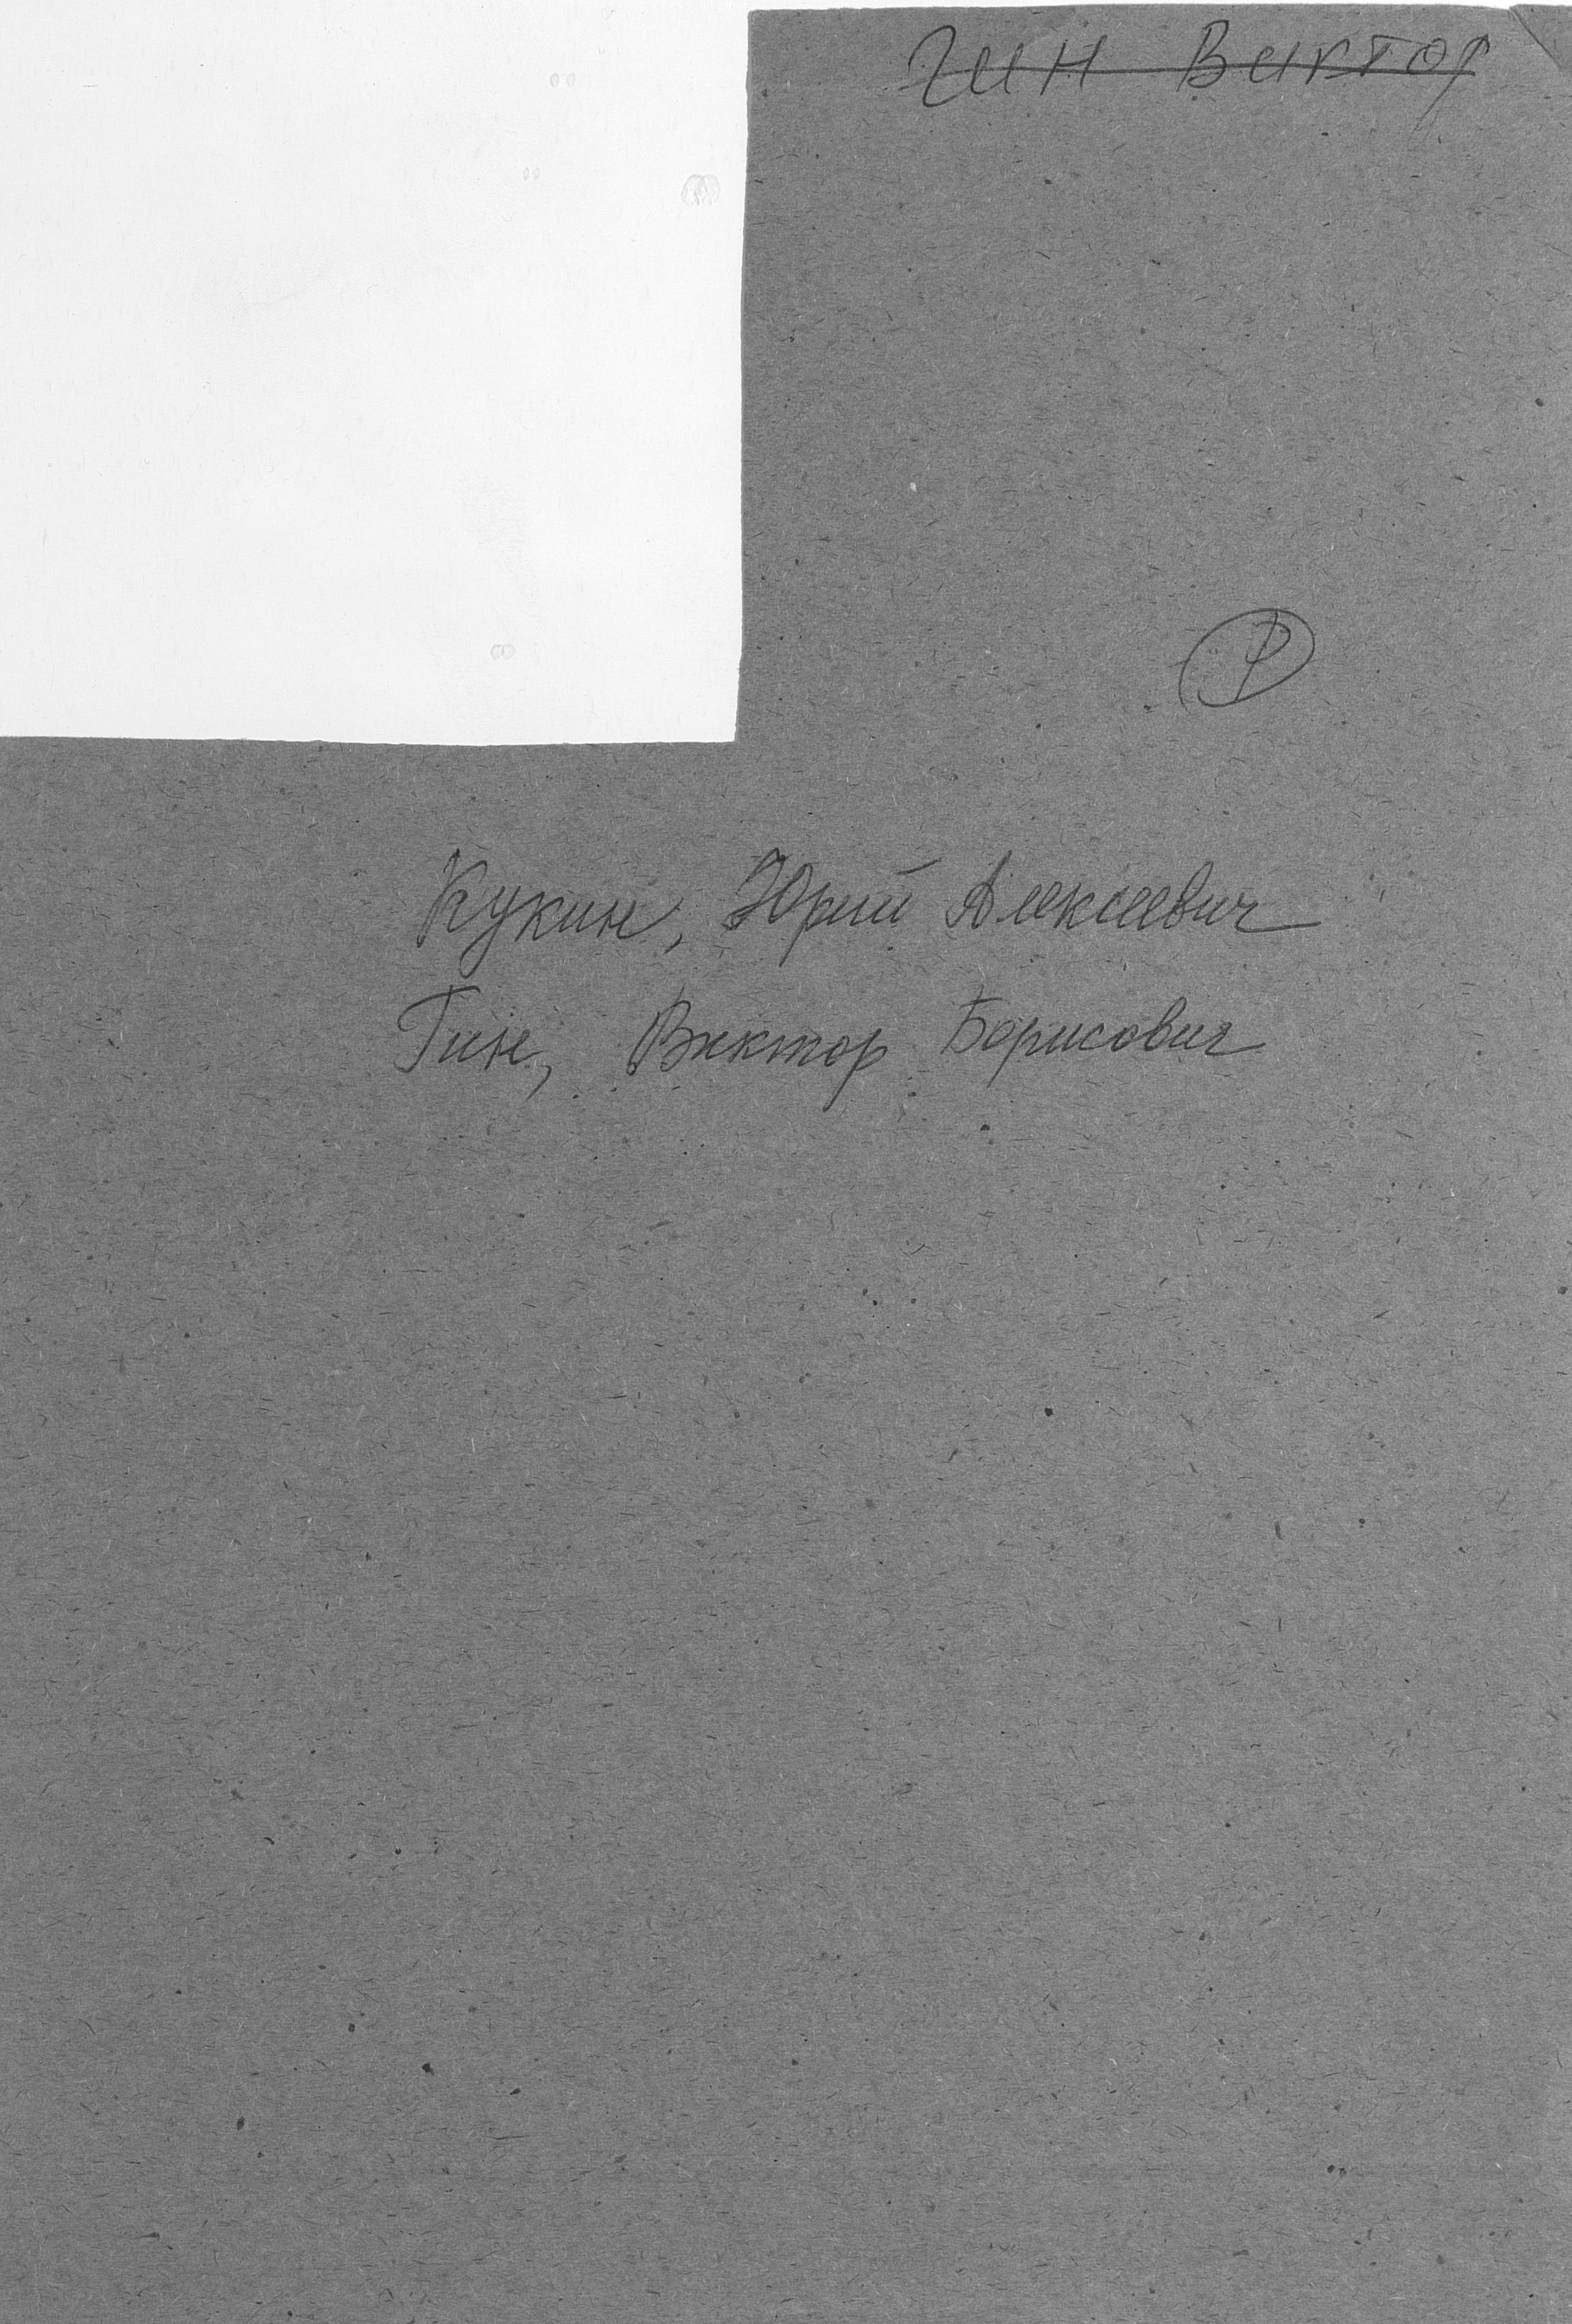 Гин Виктор
Р
Кукин, Юрий Алексеевич
Гин, Виктор Борисович